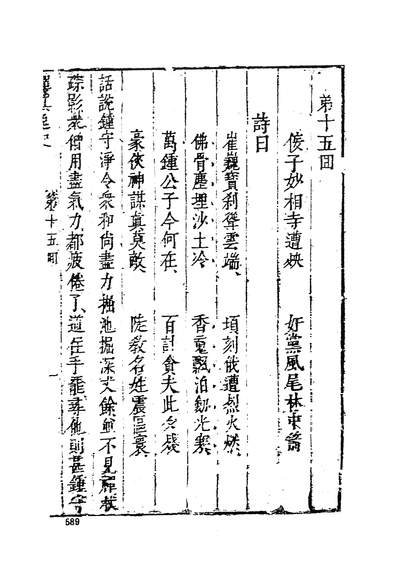 第十五回
佞子妙相寺遭殃　奸黨風尾林中箭
詩曰
崔巍寶刹聳雲端、　頃刻俄遭烈火燃、
佛骨塵埋沙土冷　香魂飄泊劫光寒、
萬鍾公子今何在、　百計貪夫此
豪俠神謀真莫敵、　陡教名姓震區寰、
話說鍾守淨令衆和尚盡力掘池掘深丈餘並不見禪杖
踪影衆僧用盡氣力都疲倦了、道 尋他則甚鍾守
禪真逸史　第十五回　一
589